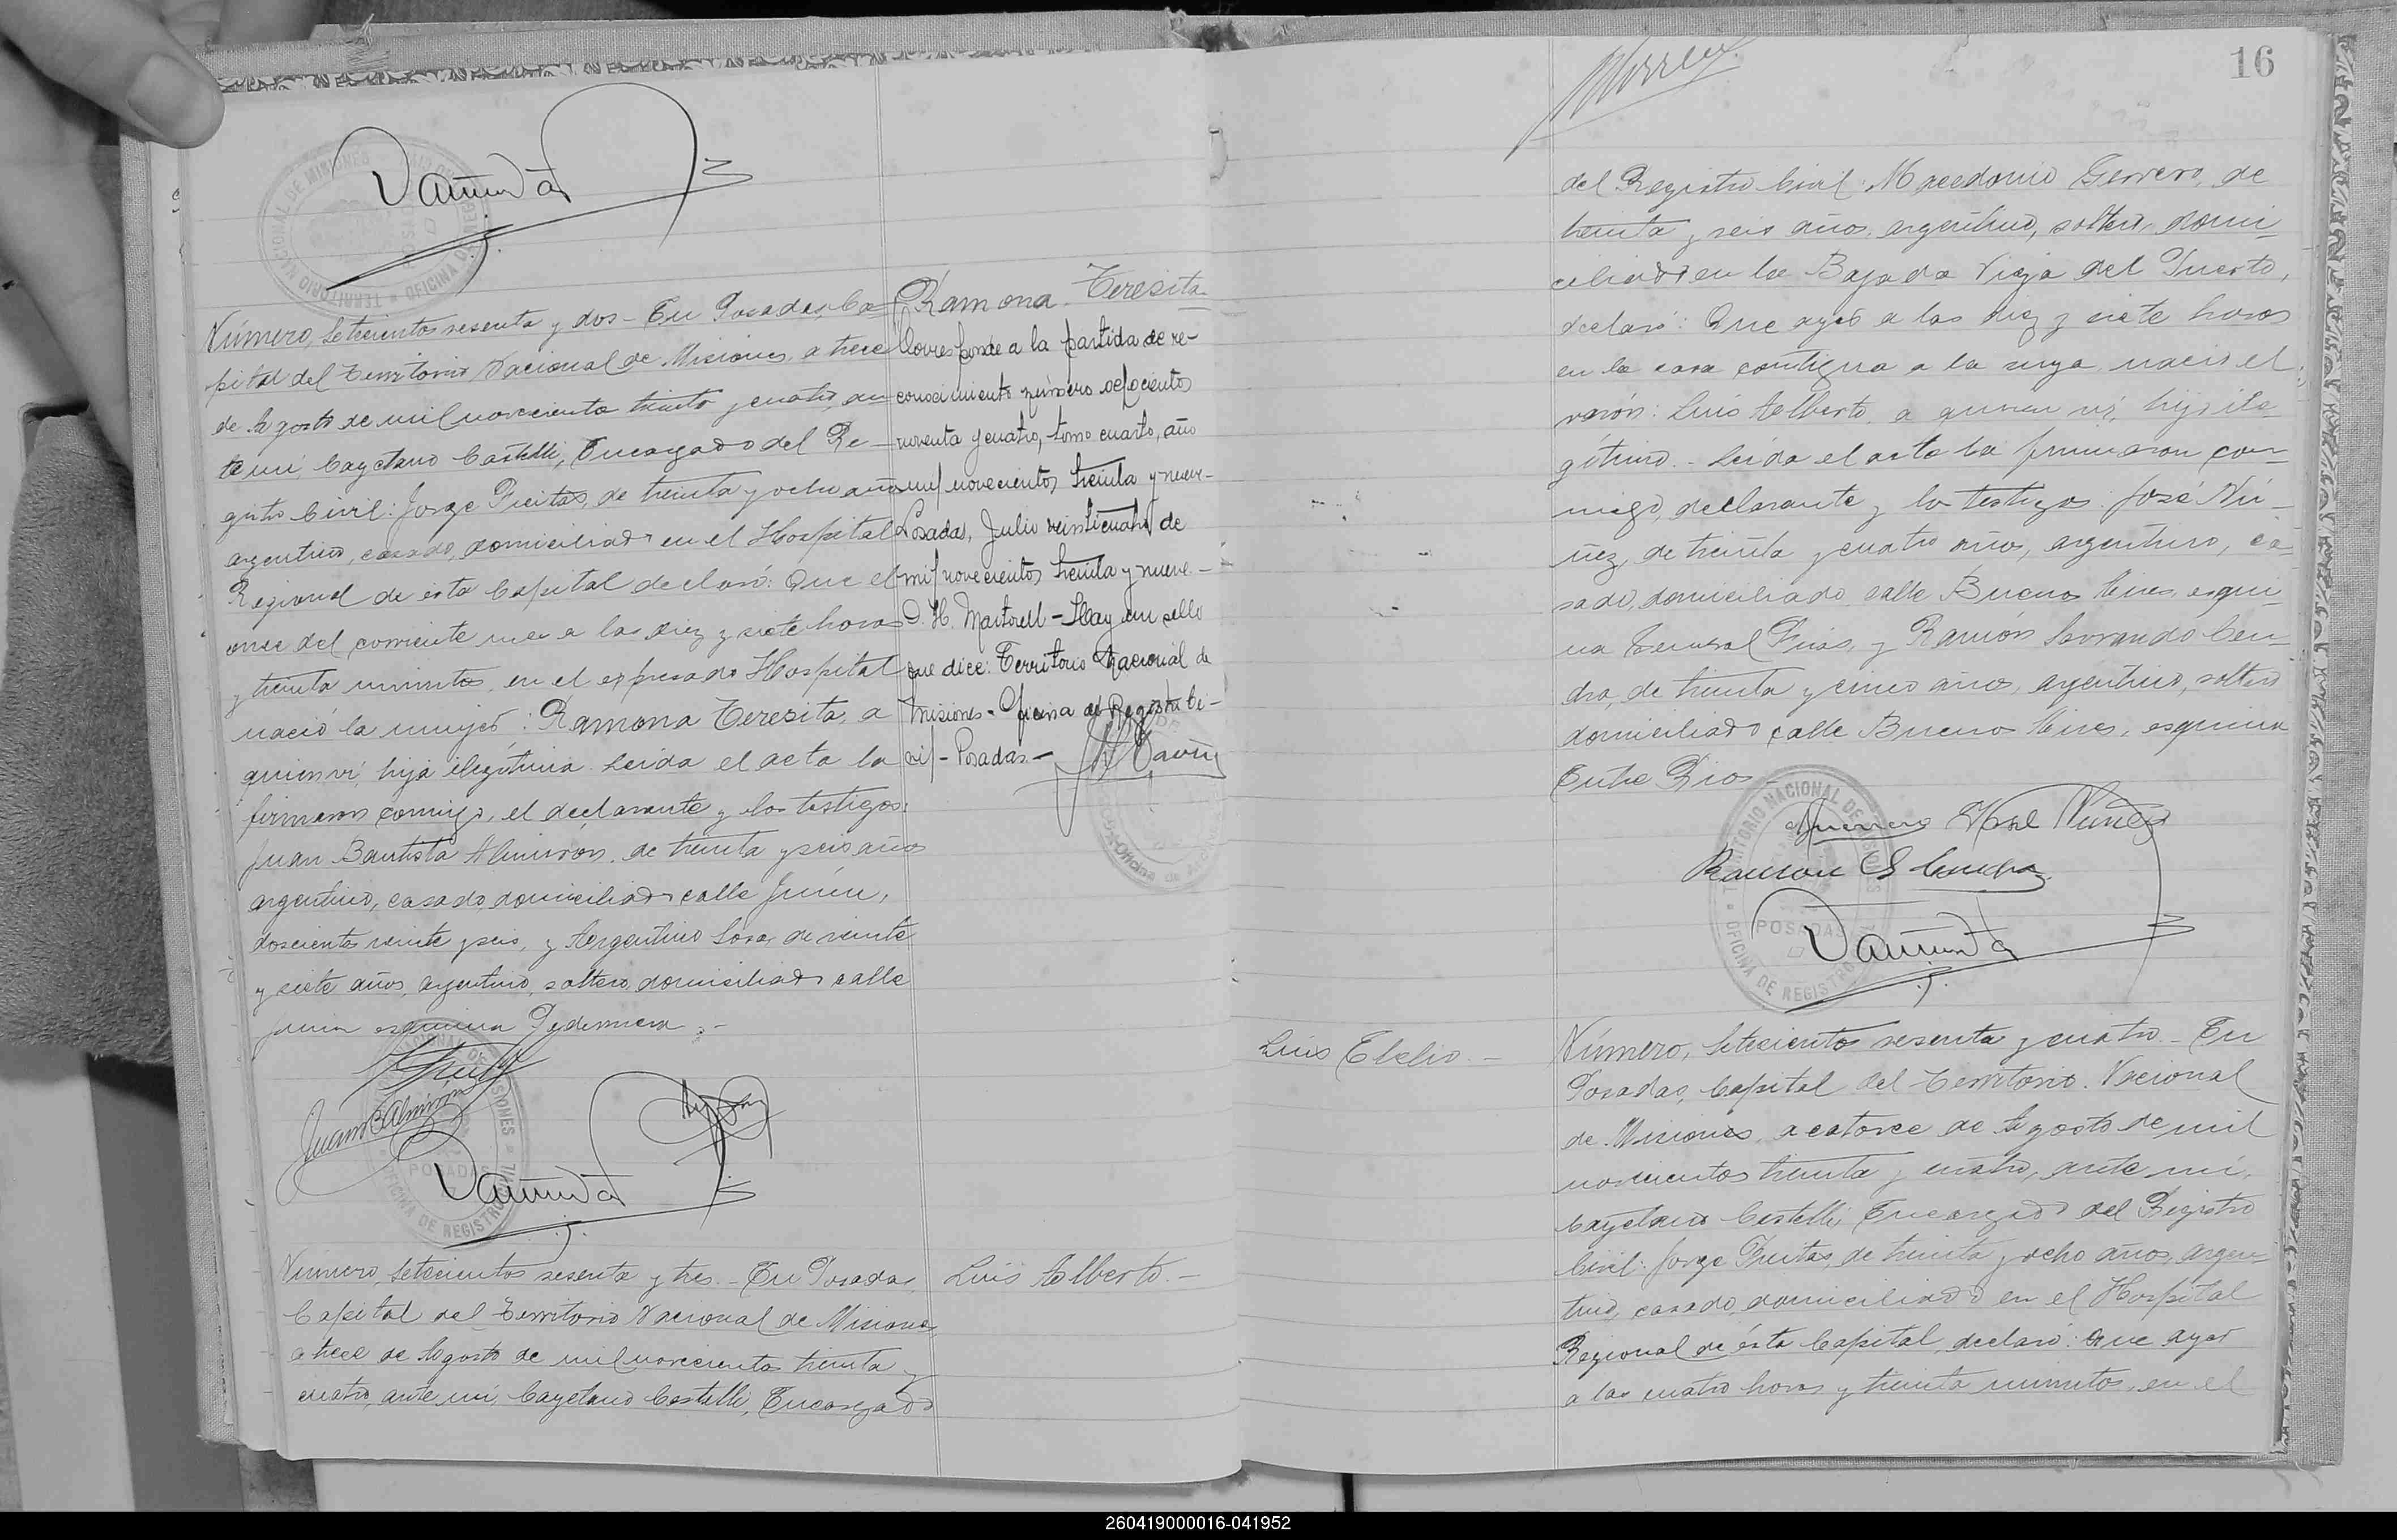 Número, Setecientos sesenta y dos - En Posadas, Ca-
pital del Territorio Nacional de Misiones, a trece
de Agosto de mil novecientos treinta y cuatro, an-
te mí, Cayetano Castelli, Encargado del Re-
gistro Civil: Jorge Freitas, de treinta y ocho años
argentino, casado, domiciliado en el Hospital
Regional de esta Capital declaró: Que el
once del corriente mes a las diez y siete horas
y treinta minutos, en el expresado Hospital
nació la mujer: Ramona Teresita, a
quien ví, hija ilegítima. Leída el acta la
firmaron conmigo, el declarante y los testigos:
Juan Bautista Almirón, de treinta y seis años
argentino, casado, domiciliado calle Junín,
doscientos veinte y seis, y Argentino Sosa, de veinte
y siete años, argentino, soltero, domiciliado calle
Junín esquina Pedernera.-
Juan B Almirón
Ramona Teresita
Corresponde a la partida de re-
conocimiento número setecientos
noventa y cuatro, tomo cuarto, año
mil novecientos treinta y nueve-
Posadas, Julio veinticuatro de
mil novecientos treinta y nueve-
H. Martorell - Hay un sello
que dice: Territorio Nacional de
Misiones - Oficina del Registro Ci-
vil - Posadas.-
Número, Setecientos sesenta y tres.- En Posadas,
Capital del Territorio Nacional de Misiones,
a trece de Agosto de mil novecientos treinta y
cuatro, ante mí, Cayetano Castelli, Encargado
Luis Alberto.-
16
del Registro Civil: Macedonio Gerrero, de
treinta y seis años, argentino, soltero, domi-
ciliado en la Bajada Vieja del Puerto,
declaró: Que ayer a las diez y siete horas
en la casa contigua a la suya, nació el
varón: Luis Alberto, a quien ví, hijo ile-
gítimo.- Leída el acta la firmaron con-
migo, declarante y los testigos: José Nú-
ñez, de treinta y cuatro años, argentino, ca-
sado, domiciliado calle Buenos Aires, esqui-
na General Frías, y Ramón
dro, de treinta y cinco años, argentino, soltero
domiciliado calle Buenos Aires, esquina
Entre Ríos
José Núñez
Ramón
TERRITORIO NACIONAL DE MISIONES
OFICINA DE REGISTRO CIVIL
POSADAS
Luis Elelio.-
Número, Setecientos sesenta y cuatro - En
Posadas, Capital del Territorio Nacional
de Misiones, a catorce de Agosto de mil
novecientos treinta y cuatro, ante mí,
Cayetano Castelli, Encargado del Registro
Civil: Jorge Freitas, de treinta y ocho años, argen-
tino, casado, domiciliado en el Hospital
Regional de ésta Capital, declaró: Que ayer
a las cuatro horas y treinta minutos, en el
260419000016-041952